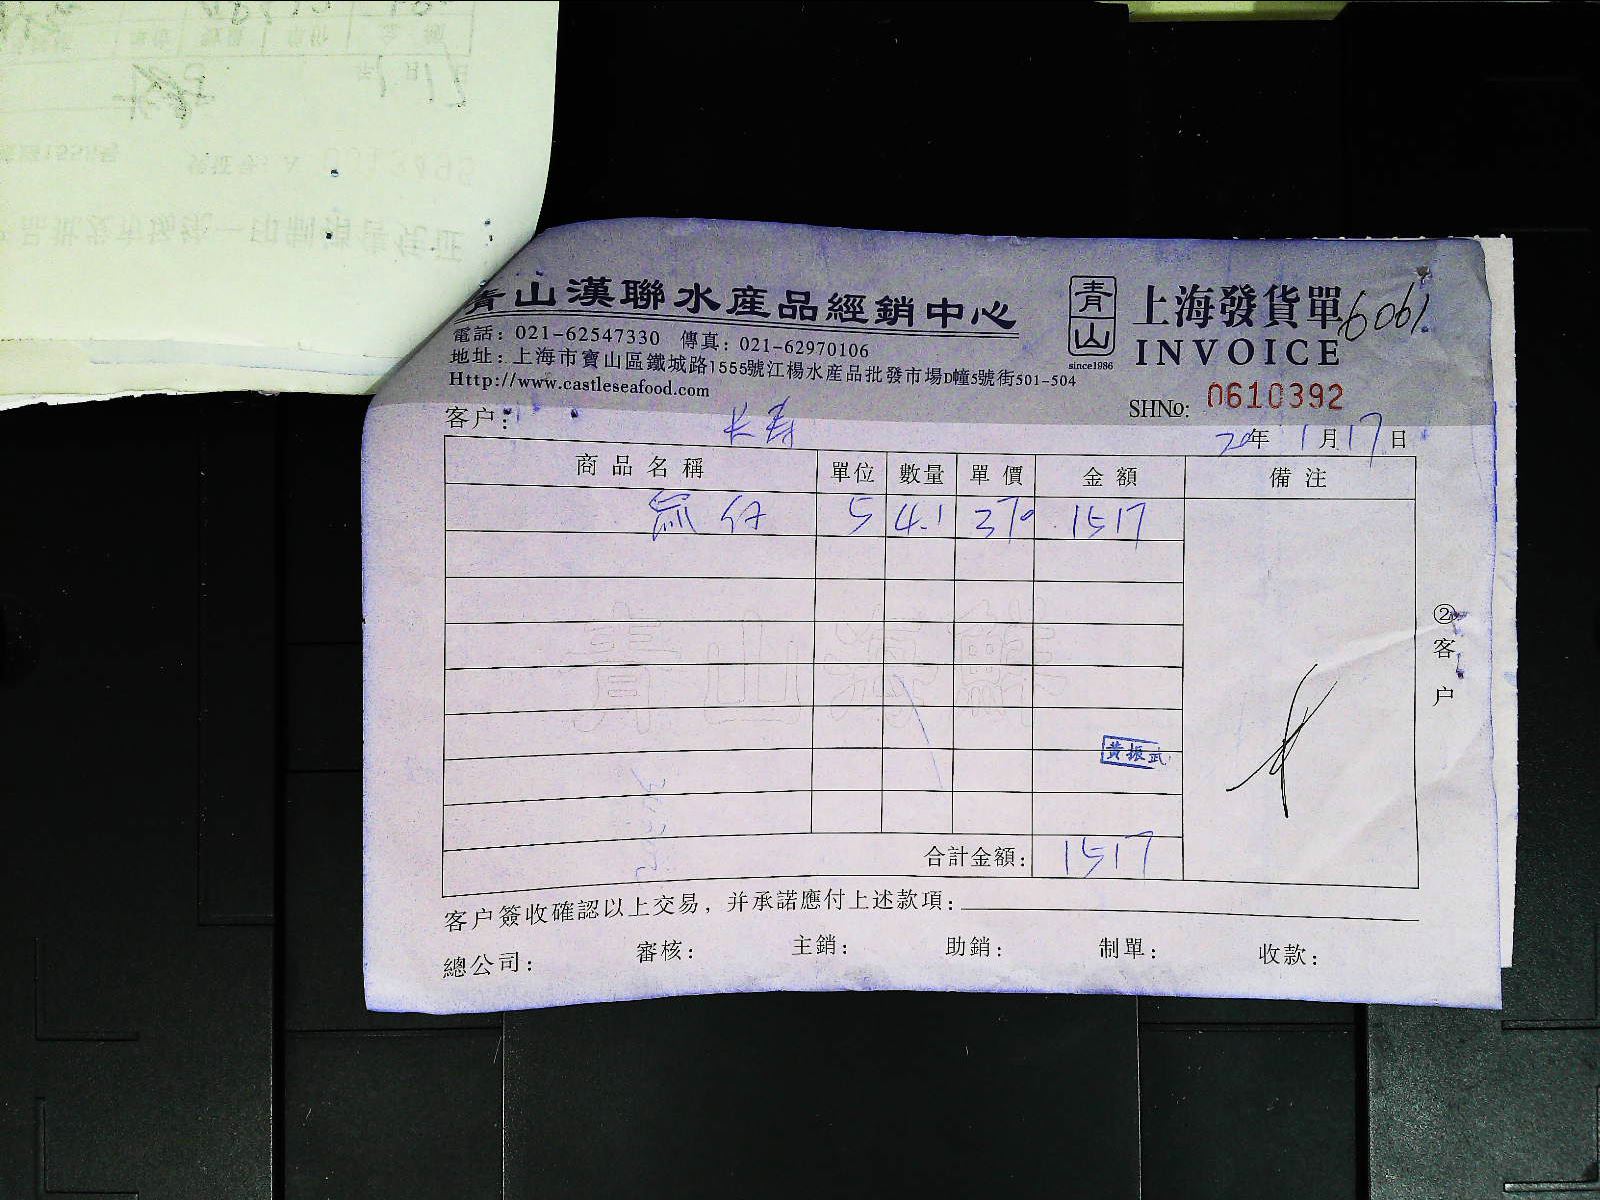 青山漢聯水產品經銷中心
電話：021-62547330 傳真：021-62970106
地址：上海市寶山區鐵城路1555號江楊水產品批發市場D幢5號街501-504
Http://www.castleseafood.com
青山
since1986
上海發貨單 6061
INVOICE
SHNo: 0610392
客户： 长寿
20年 1月17日
商品名稱 單位 數量 單價 金額 備注
5 4.1 370 1517
青山海鮮
黃振武
合計金額： 1517
②客户
客户簽收確認以上交易，并承諾應付上述款項：
總公司： 審核： 主銷： 助銷： 制單： 收款：